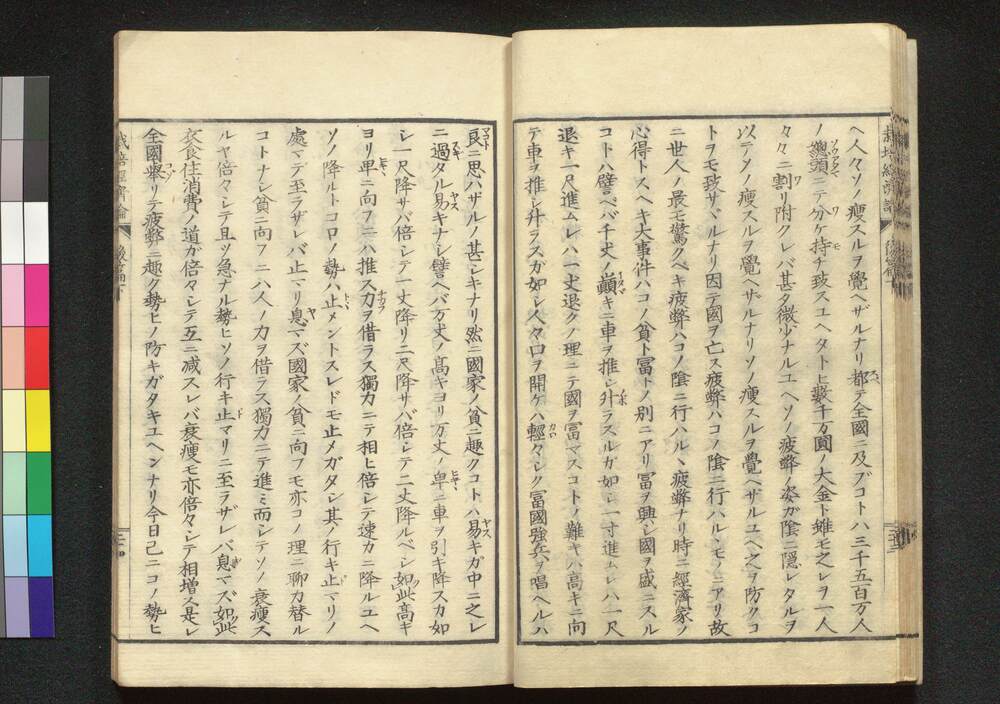 ヘ人々ソノ瘦スルヲ覺ヘザルナリ都テ全國ニ及ブコトハ三千五百万人
ノ緫頭ニテ分ケ持チ致スユヘタトヒ數千万圓ノ大金ト雖モ之レヲ一人
々々ニ割リ附クレバ甚タ微少ナルユヘソノ疲弊ノ姿ガ陰ニ隱レタルヲ
以テソノ瘦スルヲ覺ヘザルナリソノ瘦スルヲ覺ヘザルユヘ之ヲ防クコ
トヲモ致サヾルナリ因テ國ヲ亡ス疲弊ハコノ陰ニ行ハルヽモノニアリ故
ニ世人ノ最モ驚クベキ疲弊ハコノ陰ニ行ハルヽ疲弊ナリ時ニ經濟家ノ
心得トスヘキ大事件ハコノ貧ト冨トノ別ニアリ冨ヲ興シ國ヲ盛ニスル
コトハ譬ヘバ千丈ノ巔キニ車ヲ推シ升ラスルガ如シ一寸進ムレハ一尺
退キ一尺進ムレハ一丈退クノ理ニテ國ヲ冨マスコトノ難キハ高キニ向
テ車ヲ推シ升ラスガ如シ人々口ヲ開ケハ輕々シク冨國強兵ヲ唱ヘルハ
良ニ思ハザルノ甚シキナリ然ニ國家ノ貧ニ趣クコトハ易キガ中ニ之レ
ニ過タル易キナシ譬ヘバ万丈ノ髙キヨリ万丈ノ卑ニ車ヲ引キ降スカ如
シ一尺降サバ倍シテ一丈降リ二尺降サバ倍シテ二丈降ルベシ如此高キ
ヨリ卑ニ向フニハ推ス力ヲ借ラス獨力ニテ相ヒ倍シテ速カニ降ルユヘ
ソノ降ルトコロノ勢ハ止メントスレドモ止メガタシ其ノ行キ止マリノ
處マデ至ラザレバ止マリ息マズ國家ノ貧ニ向フモ亦コノ理ニ聊カ替ル
コトナシ貧ニ向フニハ人ノ力ヲ借ラス獨力ニテ進ミ而シテソノ衰瘦ス
ルヤ倍々シテ且ツ急ナル勢ヒソノ行キ止マリニ至ラザレバ息マズ如此
衣食住消費ノ道ガ倍々シテ互ニ减スレバ衰瘦モ亦倍々シテ相増ス是レ
全國舉リテ疲弊ニ趣ク勢ヒノ防キガタキユヘンナリ今日已ニコノ勢ヒ